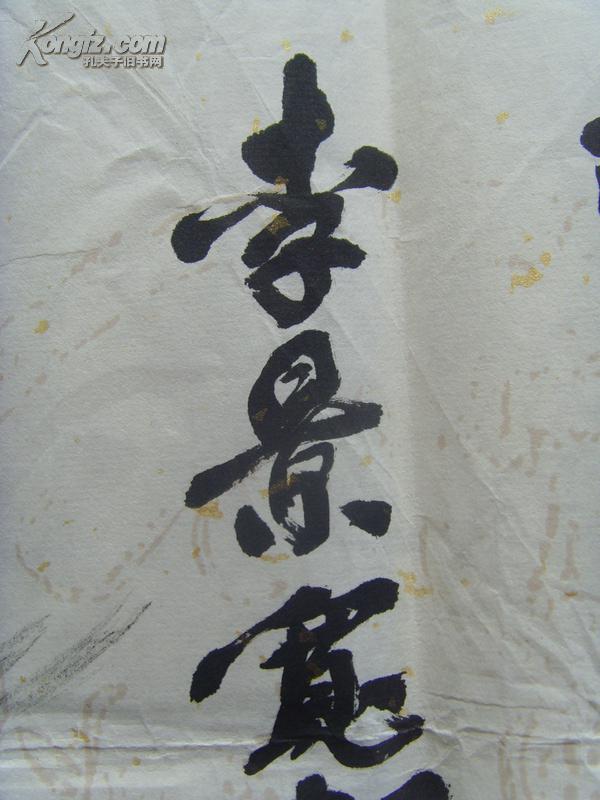 Kongfz.com
孔夫子旧书网
李景寬